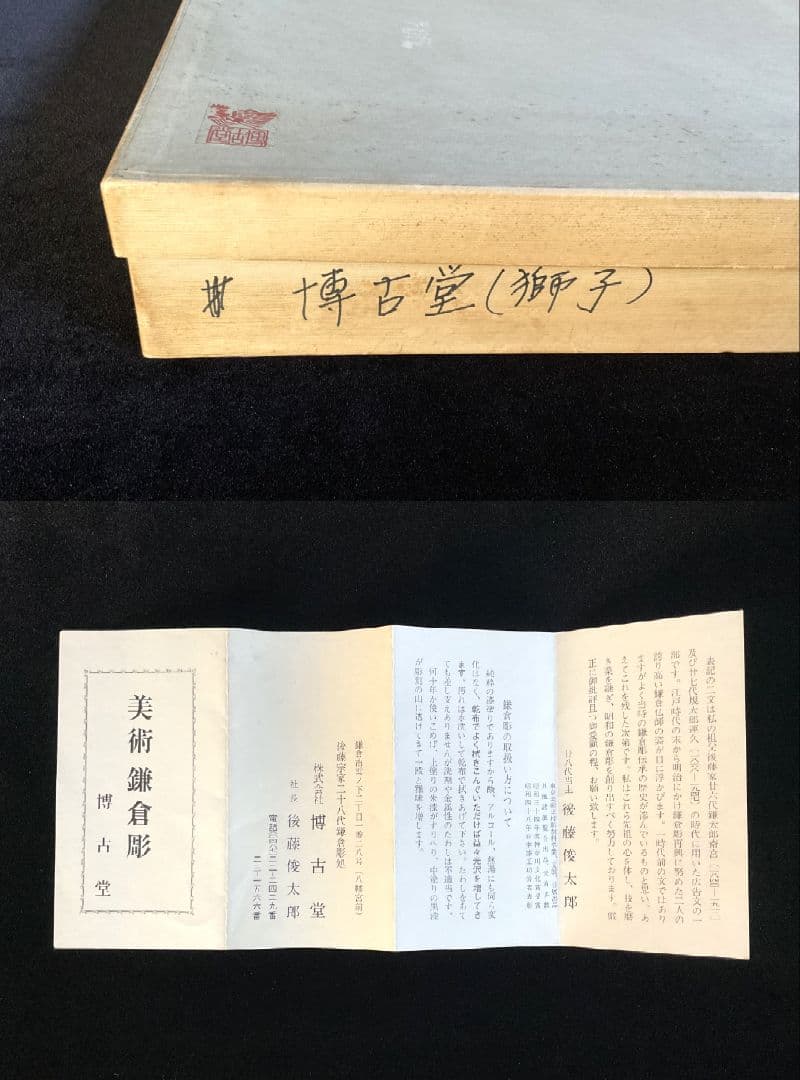 博古堂
博古堂(獅子)
表記の二文は私の祖父後藤家廿六代鎌太郎斎宮
及び廿七代規太郎運久
の時代に用いた広告文の一
部です。江戸時代の末から明治にかけ鎌倉彫再興に努めた二人の
誇り高い鎌倉仏師の姿が目に浮かびます。一時代前の文ではあり
ますがよく当時の鎌倉彫伝承の歴史が滲んでいるものと思い、あ
えてこれを残した次第です。私はこれら先祖の心を体し、技を磨
き業を継ぎ、昭和の鎌倉彫を創り出すべく努力しております。
正に御批評且つ御愛顧の程、お願い致します。
廿八代当主 後藤俊太郎
鎌倉彫の取扱い方について
純粋の漆塗りでありますから酸、アルコール、熱湯にも何ら変
化はなく、乾布でよく拭きこんでいただけば益々光沢を増してき
ます。汚れは水洗いして乾布で拭きあげて下さい。たわしをあて
ても差し支えありませんが洗剤や金属性のたわしは不適当です。
何十年か使いこめば、上塗りの朱漆がすりへり、中塗りの黒漆
が彫刻の山に透けてきて一段と雅味を増します。
鎌倉市雪ノ下二丁目一番二八号(八幡宮前)
後藤宗家二十八代鎌倉彫処
株式会社 博古堂
社長 後藤俊太郎
美術 鎌倉彫
博古堂